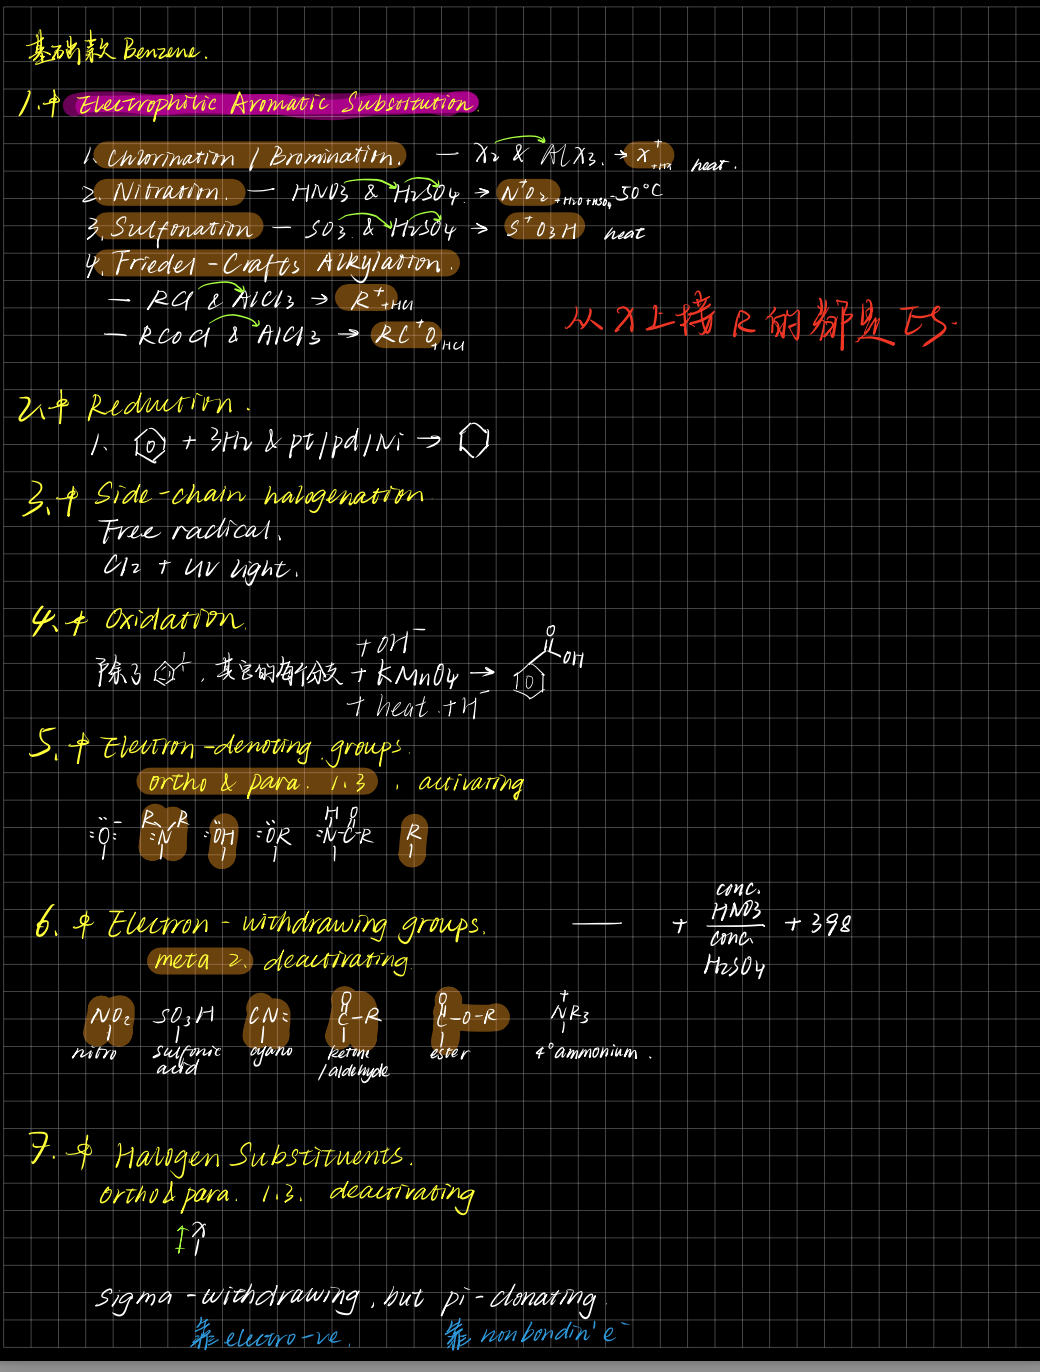 基础款 Benzene.
1. Electrophilic Aromatic Substitution.
1. Chlorination / Bromination. — X2 & AlX3. → X+ +HX heat.
2. Nitration. — HNO3 & H2SO4. → N+O2 +H2O+HSO4- 50°C
3. Sulfonation — SO3 & H2SO4 → S+O3H heat
4. Friedel-Crafts Alkylation.
— RCl & AlCl3 → R+ +HCl
— RCOCl & AlCl3 → RC+O +HCl
从X上接R的都是ES.
2. Reduction.
1. + 3H2 & pt/pd/Ni →
3. Side-chain halogenation
Free radical.
Cl2 + UV light.
4. Oxidation.
+ OH-
除了 , 其它的每个分支 + KMnO4 →
O
OH
+ heat. + H-
5. Electron-denoting groups.
ortho & para. 1.3 , activating
:Ö:- R N R :ÖH :ÖR H O :N-C-R R
6. Electron-withdrawing groups. — + conc. HNO3 / conc. H2SO4 + 398
meta 2. deactivating
NO2 SO3H CN: O C-R O C-O-R +NR3
nitro sulfonic acid cyano ketone /aldehyde ester 4°ammonium.
7. Halogen Substituents.
ortho & para. 1.3. deactivating
X
sigma-withdrawing, but pi-donating.
靠 electro-ve. 靠 nonbondin' e-